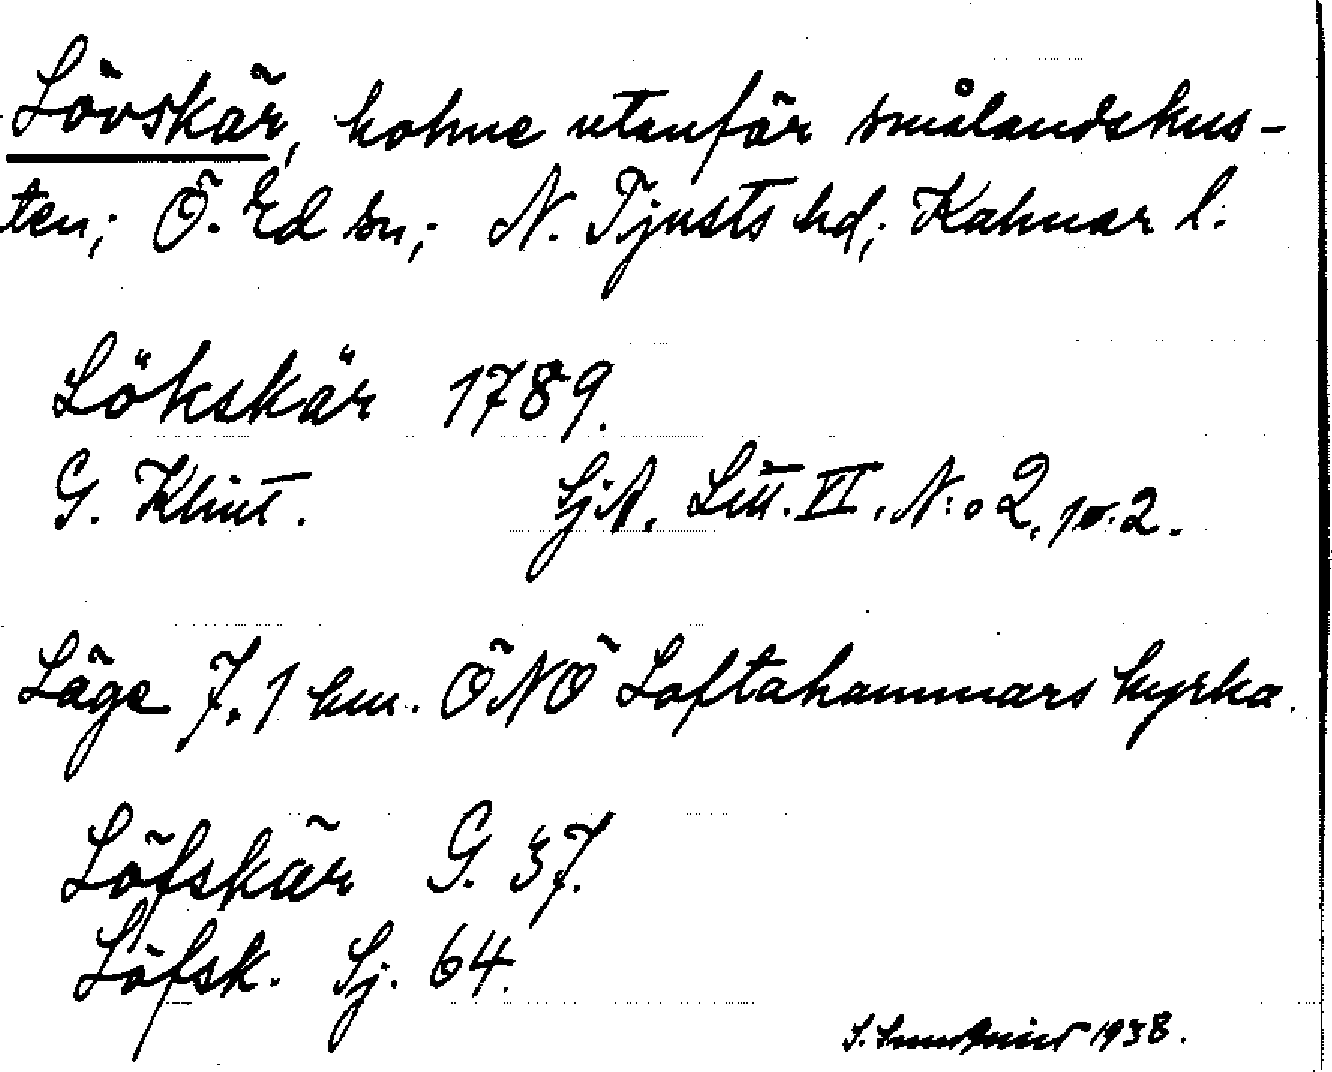 Lövskär, holme utanför smålandskus-
ten; Ö. Ed sn; N. Tjusts hd; Kalmar l.
Lökskär 1789.
G. Klint. SjA. Litt. VI, N:o 2, p. 2.
Läge 7,1 km. ÖNÖ Loftahammars kyrka.
Löfskär G. 37.
Löfsk. Sj. 64.
S. 1938.